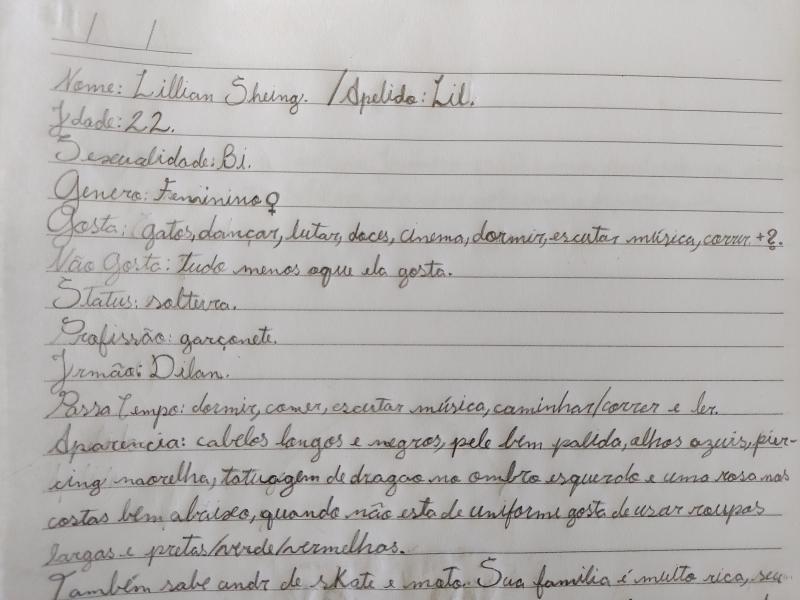 Nome: Lillian Sheing. /Apelido: Lil.
Idade: 22.
Sexualidade: Bi.
Genero: Feminino♀
Gosta: gatos, dançar, lutar, doces, cinema, dormir, escutar música, correr +?.
Não Gosta: tudo menos oque ela gosta.
Status: solteira.
Profissão: garçonete.
Irmão: Dilan.
Passa Tempo: dormir, comer, escutar música, caminhar/correr e ler.
Aparencia: cabelos longos e negros, pele bem palida, olhos azuis, pier-
cing naorelha, tatuagem de dragao no ombro esquerdo e uma rosa nas
costas bem abaixo, quando não esta de uniforme gosta de usar roupas
largas e pretas/verde/vermelhas.
Também sabe andr de skate e moto. Sua familia é muito rica, seu